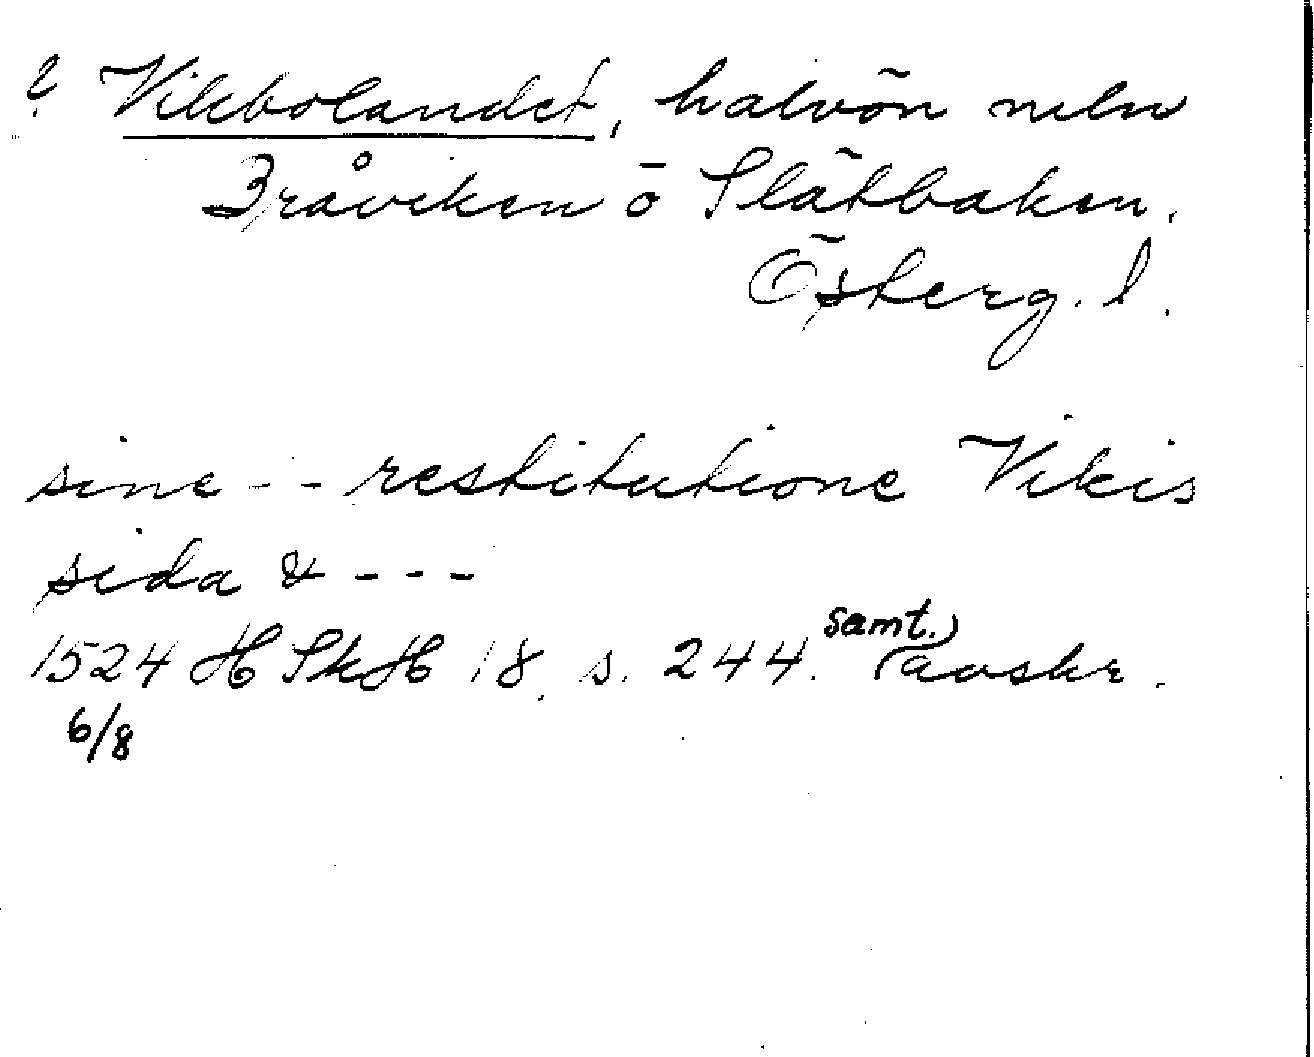 ? Vikbolandet, halvön meln
Bråviken ö Slätbaken,
Österg. l.
sine -- restitutione Vikis
sida & ---
1524 HSkH 18, s. 244. samt. avskr.
6/8